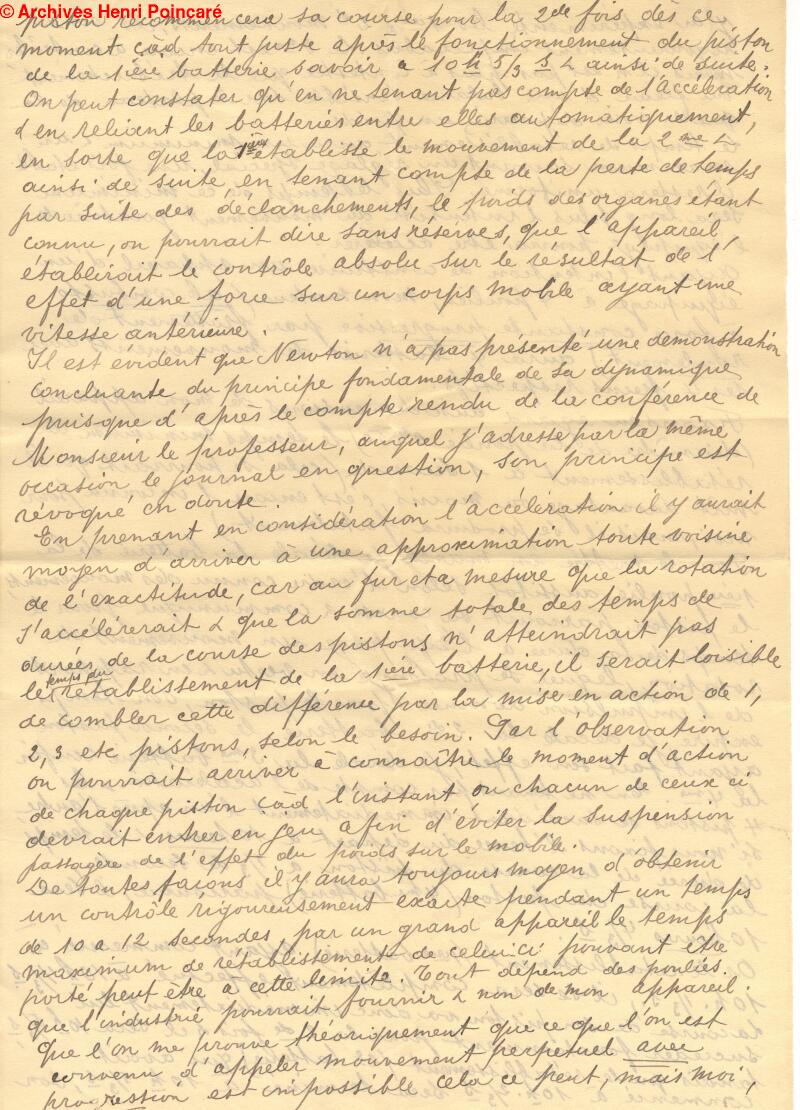 © Archives Henri Poincaré
piston recommencera sa course pour la 2de fois dès ce
moment càd tout juste après le fonctionnement du piston
de la 1ière batterie savoir a 10h 5/3 s & ainsi de suite.
On peut constater qu'en ne tenant pas compte de l'accélération
d'en reliant les batteries entre elles automatiquement,
en sorte que la 1ière établisse le mouvement de la 2me &
ainsi de suite, en tenant compte de la perte de temps
par suite des déclanchements, le poids des organes étant
connu, on pourrait dire sans réserves, que l'appareil
établirait le contrôle absolu sur le résultat de l'
effet d'une force sur un corps mobile ayant une
vitesse antérieure.
Il est évident que Newton n'a pas présenté une demonstration
concluante du principe fondamentale de sa dynamique
puisque d'après le compte rendu de la conférence de
Monsieur le professeur, auquel j'adresse par la même
occasion le journal en question, son principe est
révoqué en doute.
En prenant en considération l'accélération il y aurait
moyen d'arriver à une approximation toute voisine
de l'exactitude, car au fur et a mesure que la rotation
s'accélérerait & que la somme totale des temps de
durées de la course des pistons n'atteindrait pas
le temps du rétablissement de la 1ière batterie, il serait loisible
de combler cette différence par la mise en action de 1,
2, 3 etc pistons, selon le besoin. Par l'observation
on pourrait arriver à connaître le moment d'action
de chaque piston càd l'instant ou chacun de ceux ci
devrait entrer en jeu afin d'éviter la suspension
passagère de l'effet du poids sur le mobile.
De toutes façons il y aura toujours moyen d'obtenir
un contrôle rigoureusement exacte pendant un temps
de 10 a 12 secondes par un grand appareil le temps
maximum de rétablissement de celui ci pouvant être
porté peut etre a cette limite. Tout dépend des pouliés.
que l'industrie pourrait fournir & non de mon appareil.
Que l'on me prouve théoriquement que ce que l'on est
convenu d'appeler mouvement perpetuel avec
progression est impossible cela ce peut, mais moi,